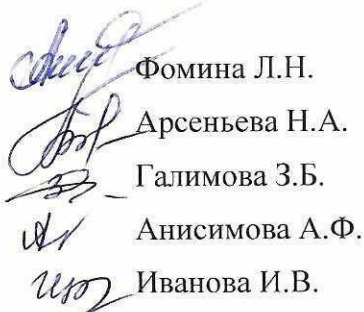 Фомина Л.Н.
Арсеньева Н.А.
Галимова З.Б.
Анисимова А.Ф.
Иванова И.В.